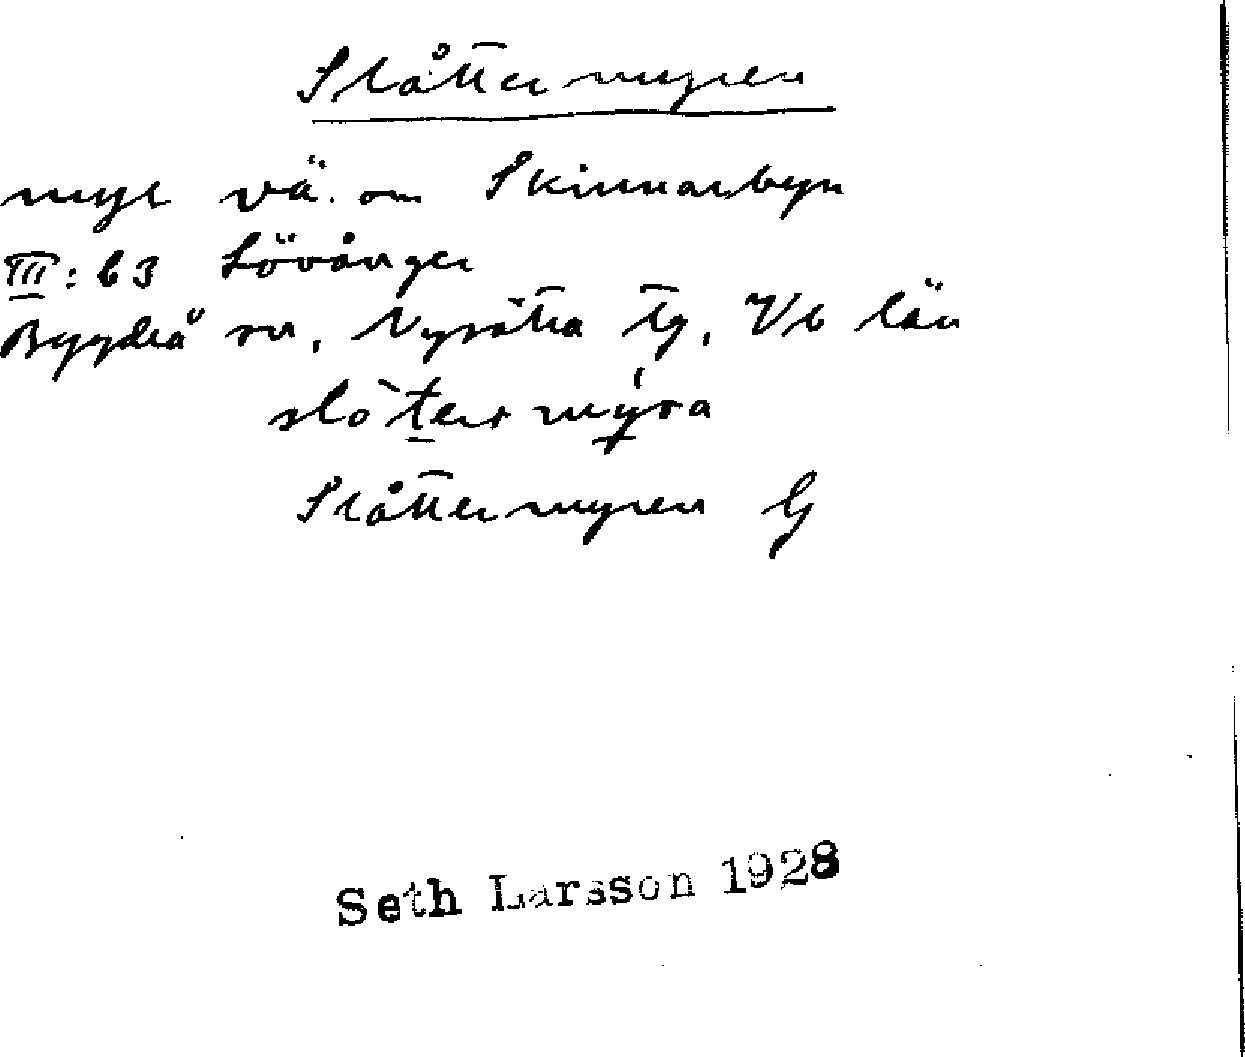 Slåttermyren
myr vä. om Skinnarbyn
III: b 3 Lövånger
Bygdeå sn, Nysätra tg, Vb län
slò̀termýra
Slåttermyren G
Seth Larsson 1928